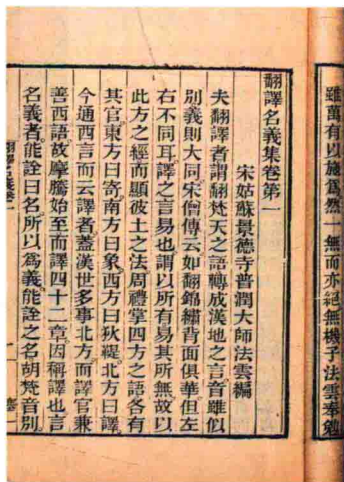 雖萬有以施爲然一無而亦絕無機子法雲奉勉
翻譯名義集卷第一
宋姑蘇景德寺普潤大師法雲編
夫翻譯者謂翻梵天之語轉成漢地之言音雖似
別義則大同宋僧傳云如翻錦繡背面俱華但左
右不同耳譯之言易也謂以所有易其所無故以
此方之經而顯彼土之法周禮掌四方之語各有
其官東方曰寄南方曰象西方曰狄鞮北方曰譯
今通西言而云譯者蓋漢世多事北方而譯官兼
善西語故摩騰始至而譯四十二章因稱譯也言
名義者能詮曰名所以爲義能詮之名胡梵音別